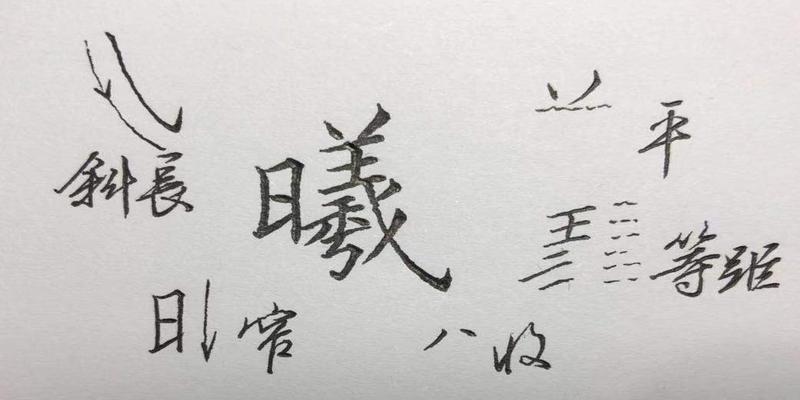 斜長
曦
平
等距
日窄
八收